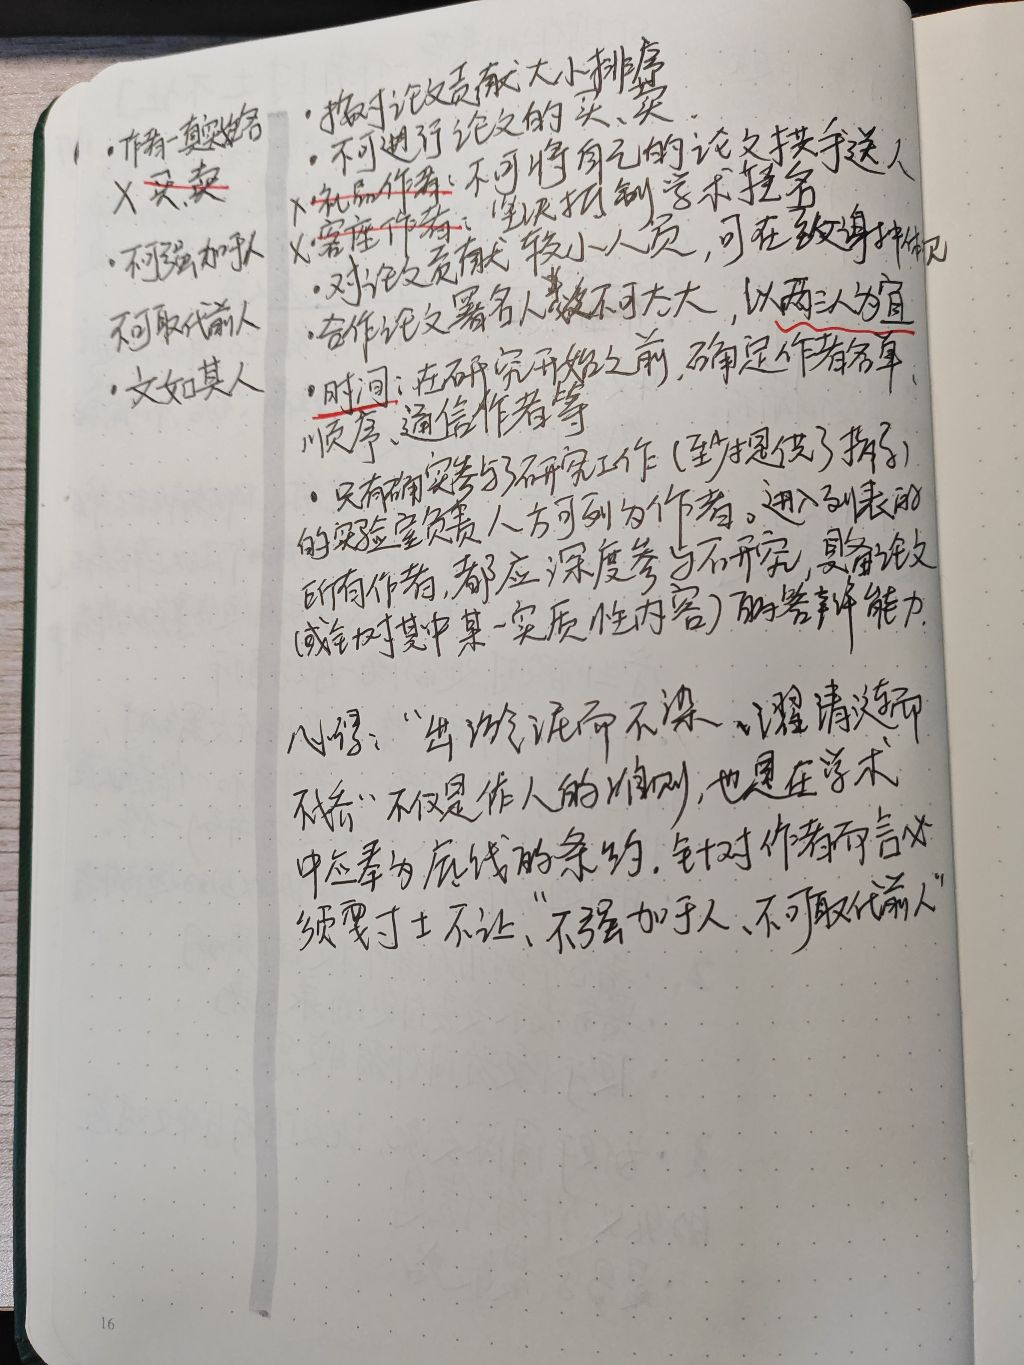 ·作者—真实姓名
× 买、卖
·不可强加于人
不可取代前人
·文如其人
·按对论文贡献大小排序
·不可进行论文的买、卖.
×·礼品作者:不可将自己的论文拱手送人
×·客座作者:坚决抵制学术挂名
·对论文贡献较小人员,可在致谢中体现
·合作论文署名人数不可太大,以两三人为宜
·时间:在研究开始之前,确定作者名单、
顺序、通信作者等
·只有确实参与了研究工作(至少提供了指导)
的实验室负责人方可列为作者。进入列表的
所有作者,都应深度参与研究,具备论文
(或针对其中某一实质性内容)的答辩能力.
心得:“出淤泥而不染、濯清涟而
不妖”不仅是作人的准则,也是在学术
中应奉为底线的条约.针对作者而言必
须要寸土不让、“不强加于人、不可取代前人”
16